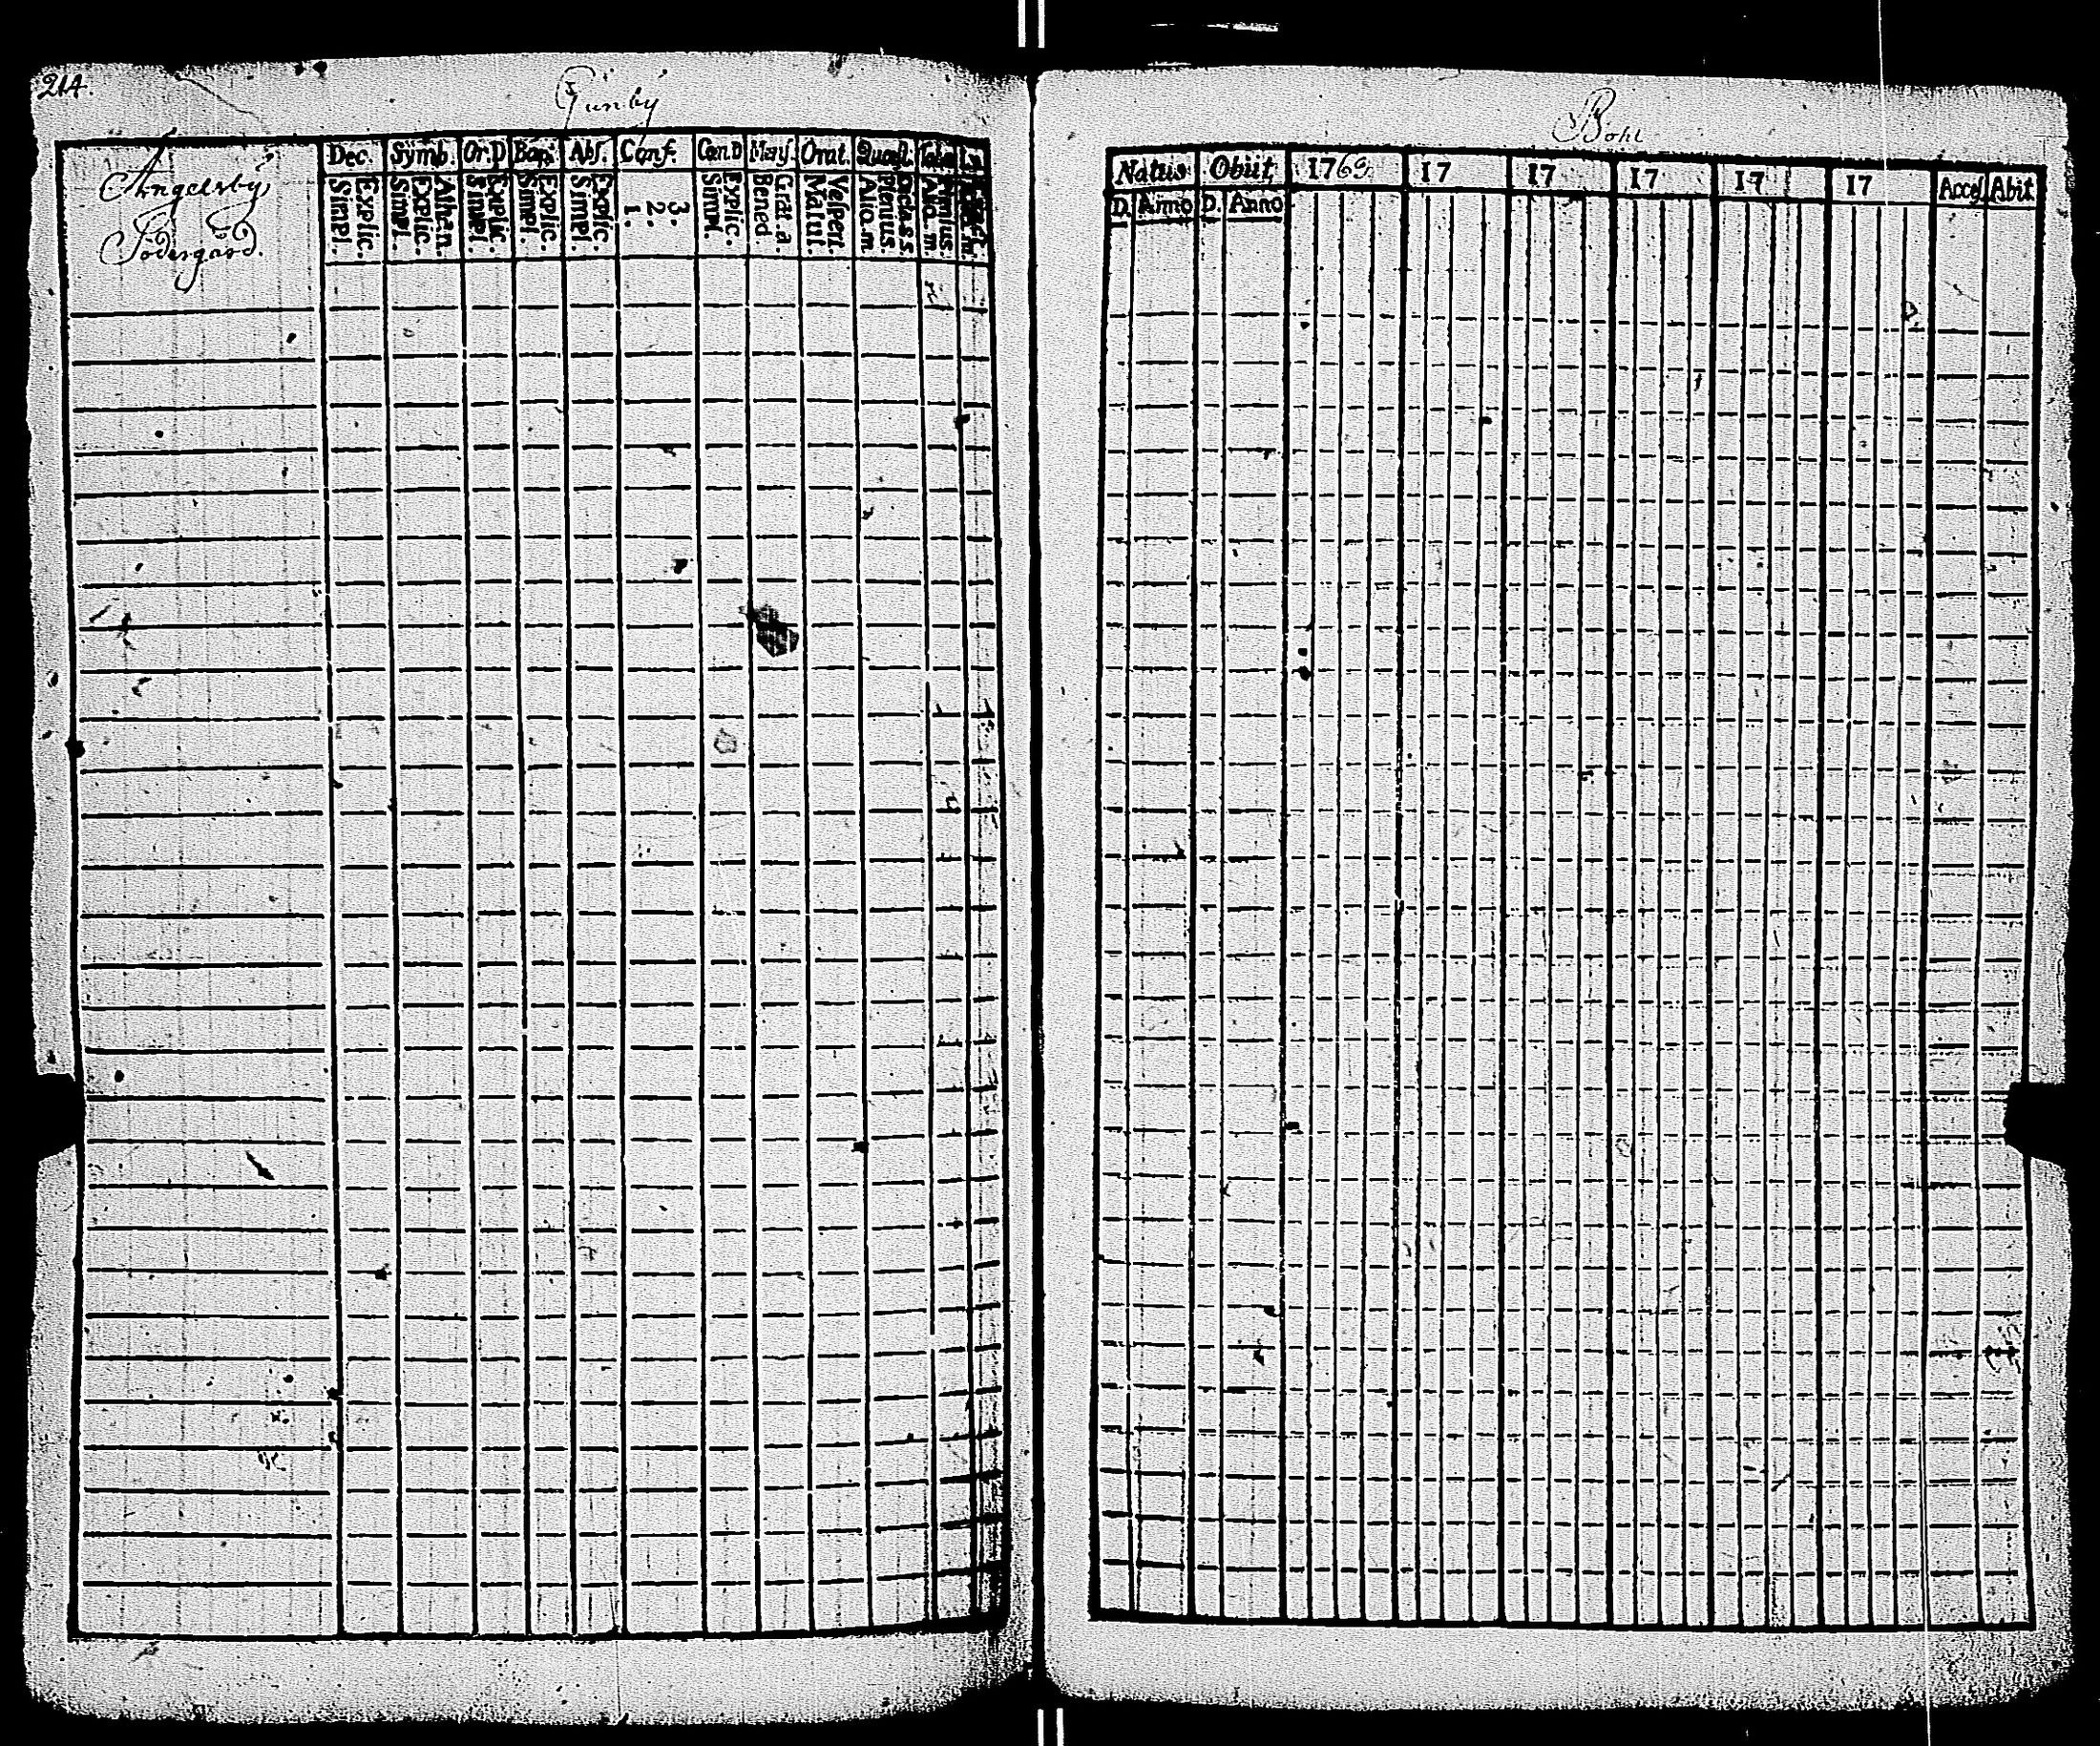 214.
Gunby
Angelsby
Södergård.
Dec. Symb. Or.D Bap. Abs. Conf. Cœn.D Mens. Orat. Quæst. Tabu
Simpl. Explic. Simpl. Explic. Athan. Simpl. Explic. Simpl. Explic. Simpl. Explic. 1. 2. 3. Simpl. Explic. Bened. Grat. a. Matut. Vespert. Aliq.m. Plenius. Aliq.m. Plenius.
Bohl
Natus Obiit 1763 17 17 17 17 17 Acces Abit
D. Anno D. Anno